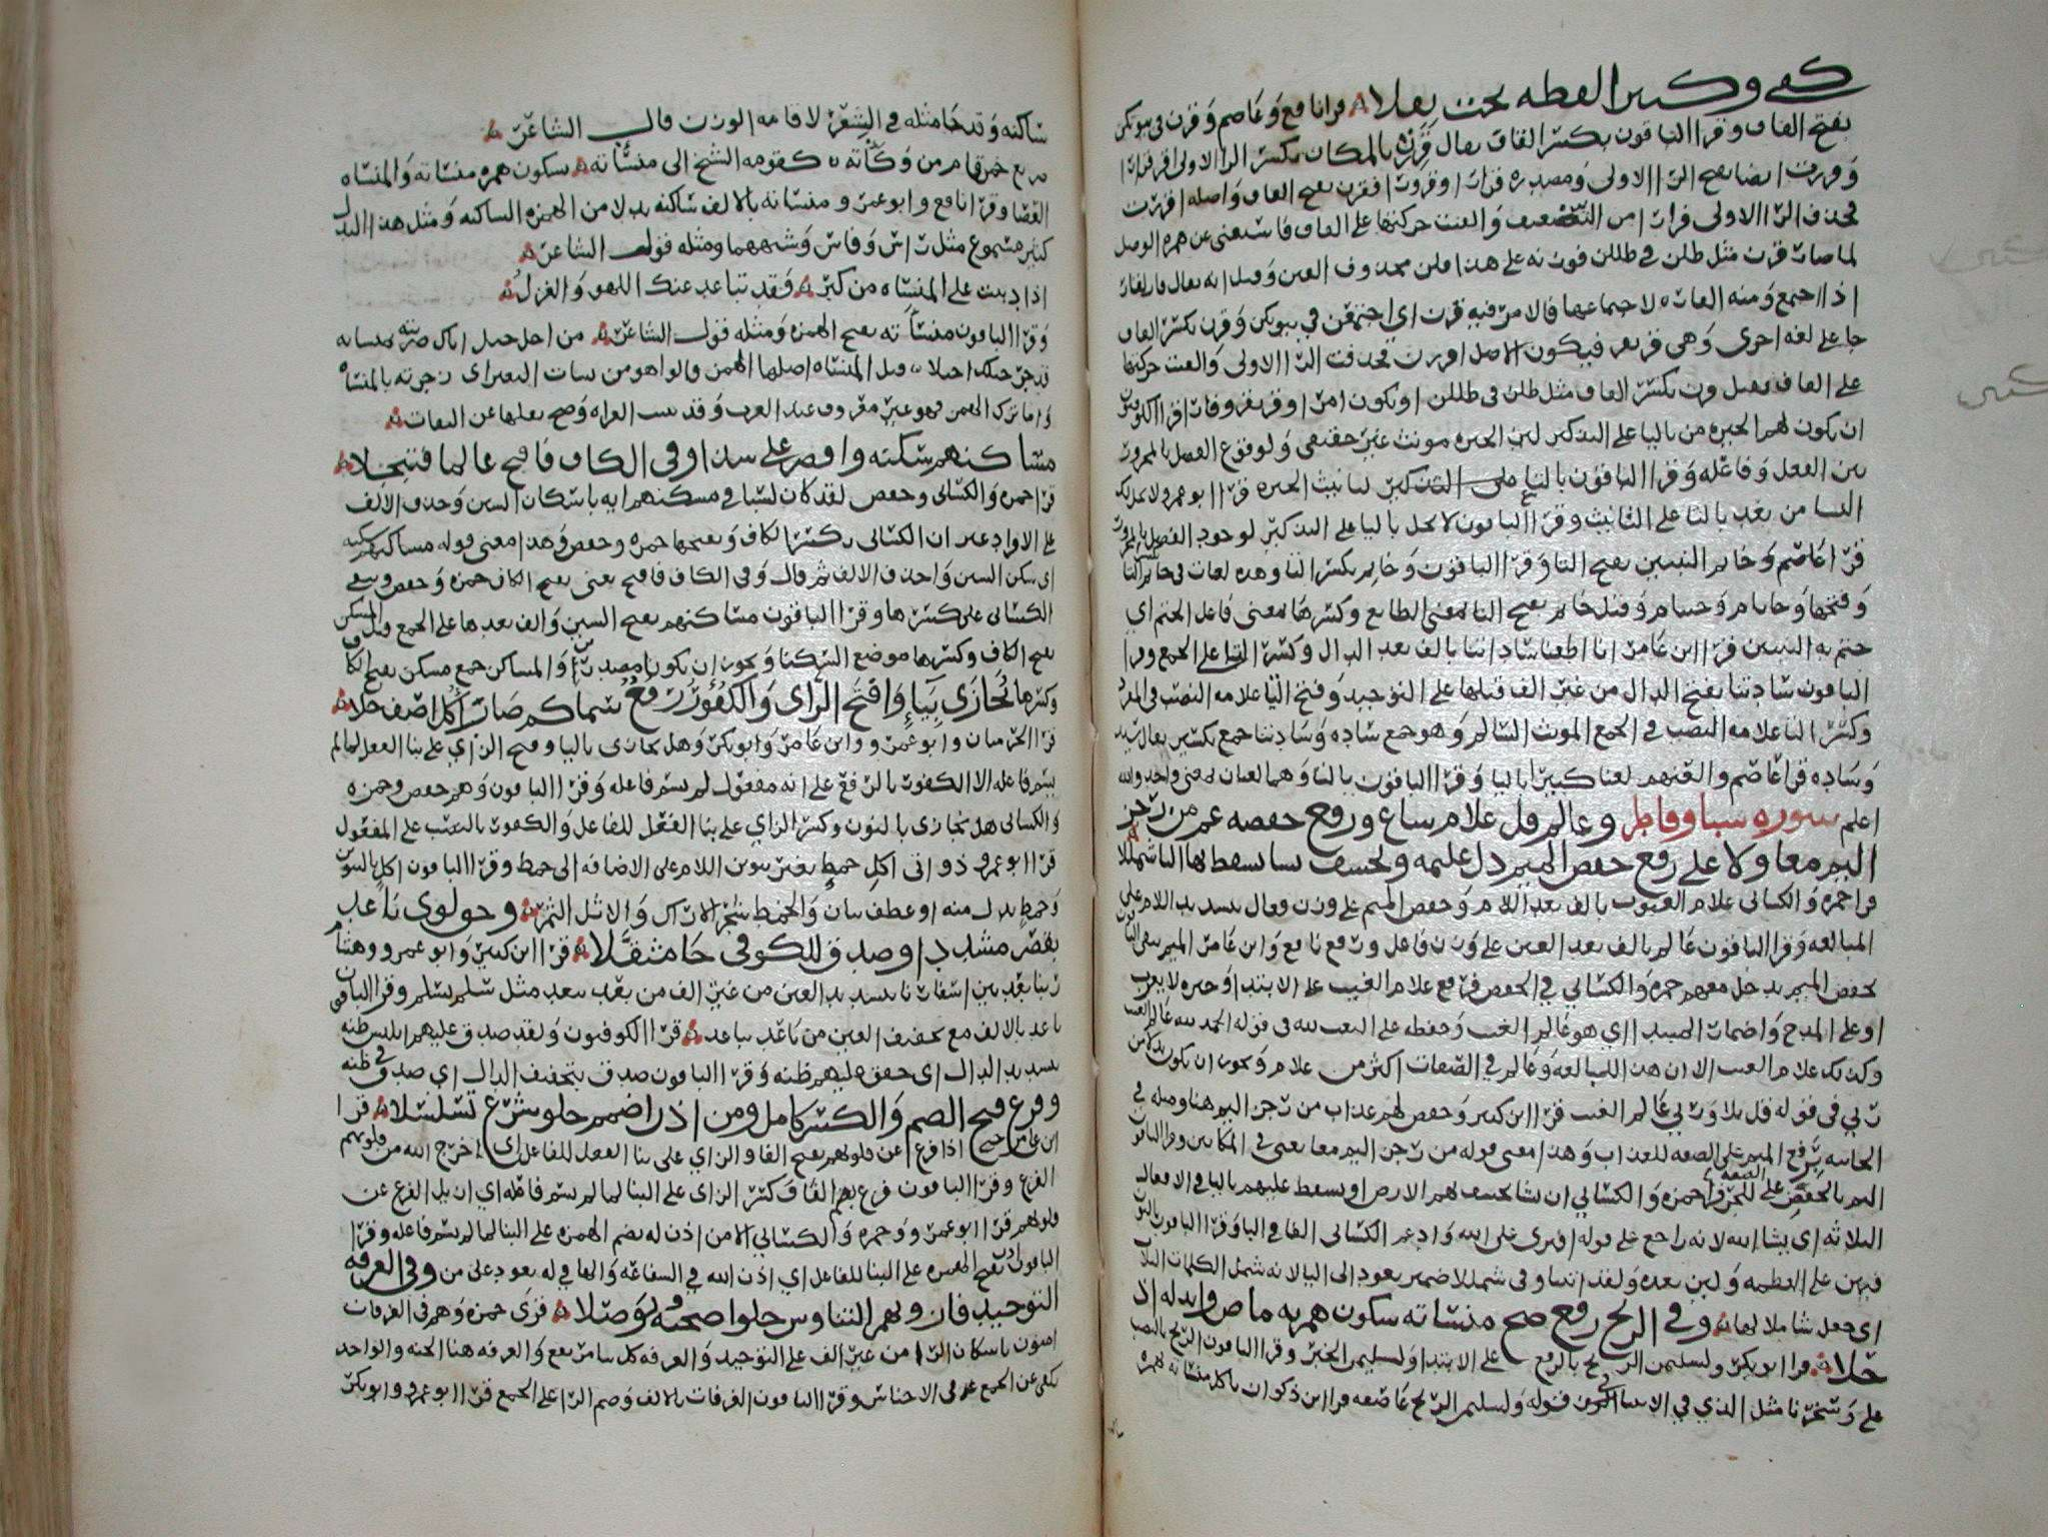 كفى وكثيرا نقطة تحت نفلا قرا نافع وعاصم وقرن في بيوتكن
بفتح القاف وقرا الباقون بكسر القاف يقال قررت بالمكان بكسر الرا الاولى اقر قرارا
وقررت ايضا بفتح الرا الاولى ومصدره قرارا وقرورا فقرن بفتح القاف واصله اقررن
فحذف الرا الاولى فرارا من التضعيف والقيت حركتها على القاف فاستغنى عن همزة الوصل
لما صارت قرن مثل ظلن في ظللن فوزنه على هذا فلن محذوف العين وقيل انه يقال قار يقار
اذا اجتمع ومنه القارة لاجتماعها فالامر فيه قرن اي اجتمعن في بيوتكن وقرن بكسر القاف
جا على لغة اخرى وهي قر يقر فيكون الاصل اقررن فحذفت الرا الاولى والقيت حركتها
على القاف فقيل قرن بكسر القاف مثل ظلن في ظللن او يكون امرا وقر يقر وقارا قرا الكوفيون
ان يكون لهم الخيرة من باليا على التذكير لان الخيرة مونث غير حقيقي ولوقوع الفصل بالمجرور
بين الفعل وفاعله وقرا الباقون بالتا لتانيث الخيرة قرا ابو عمرو لا تحل لك
النسا من بعد بالتا على التانيث وقرا الباقون لا يحل باليا على التذكير لوجود الفصل بالمجرور
قرا عاصم وخاتم النبيين بفتح التا وقرا الباقون وخاتم بكسر التا وهذه لغات في خاتم بكسر التا
وفتحها وخاتام وختام وقيل خاتم بفتح التا بمعنى الطابع وكسرها بمعنى فاعل الختم اي
ختم به النبيين قرا ابن عامر انا اطعنا ساداتنا بالف بعد الدال وكسر التا على الجمع وقرا
الباقون سادتنا بفتح الدال من غير الف قبلها على التوحيد وفتح التا علامة النصب في المفرد
وكسر التا علامة النصب في الجمع المونث السالم وهو جمع سادة وساداتنا جمع تكسير يقال سيد
وسادة قرا عاصم والعنهم لعنا كبيرا بالبا وقرا الباقون بالثا وهما لغتان بمعنى واحد والله
اعلم سورة سبا وفاطر وعالم قل علام شاع ورفع خفضه عم من رجز
اليم معا ولا على رفع خفض الميم دل عليمه ونخسف نشا نسقط بها اليا شمللا
قرا حمزة والكسائي علام الغيوب بالف بعد اللام وخفض الميم على وزن فعال بتشديد اللام على
المبالغة وقرا الباقون عالم بالف بعد العين على وزن فاعل ورفع نافع وابن عامر الميم بقى الباقون
بخفض الميم يدخل معهم حمزة والكسائي في الخفض فرفع علام الغيب على الابتدا وخبره لا يعزب
او على المدح واضمار المبتدا اي هو عالم الغيب وخفضه على النعت لله في قوله الحمد لله عالم الغيب
وكذلك علام الغيب الا ان هذا للمبالغة وعالم في الصفات اكثر من علام ويجوز ان يكون بدلا من
ربي في قوله قل بلى وربي عالم الغيب قرا ابن كثير وحفص لهم عذاب من رجز اليم هنا ومثله في
الجاثية برفع الميم على الصفة للعذاب وهذا معنى قوله من رجز اليم معا يعني في المكانين وقرا الباقون
اليم بالخفض على الصفة للرجز قرا حمزة والكسائي ان يشا يخسف بهم الارض او يسقط عليهم باليا في الافعال
الثلاثة اي يشا الله لانه راجع على قوله افترى على الله وادغم الكسائي الفا في البا وقرا الباقون بالنون
فيهن على العظمة ولان بعده ولقد اتينا وفي شمللا ضمير يعود الى اليا لانه شمل الكلمات الثلاث
اي جعل شاملا لها وفي الريح رفع صح منسأته سكون همزته ماض وابدله اذ
حلا قرا ابو بكر ولسليمن الريح بالرفع على الابتدا ولسليمن الخبر وقرا الباقون الريح بالنصب
على وسخرنا مثل الذي في الانبيا قوله ولسليمن الريح عاصفة قرا ابن ذكوان تاكل منسأته بهمزة
ساكنة وقد جا مثله في الشعر لاقامة الوزن قال الشاعر
صريع خمر قام من وكأته كقومة الشيخ الى منسأته سكون همزه منسأته والمنسأة
العصا وقرا نافع وابو عمرو منساته بالالف ساكنة بدلا من الهمزة الساكنة ومثل هذا البدل
كثير مسموع مثل راس وفاس وشبههما ومثله قول الشاعر
اذا دببت على المنساة من كبر فقد تباعد عنك اللهو والغزل
وقرا الباقون منسأته بفتح الهمزة ومثله قول الشاعر من اجل حبل اباك ضربته بمنساة
قد جر حبلك احبلا قيل المنساة اصلها الهمز والواهو من نسات البعير اي زجرته بالمنساة
واما ترك الهمز فهو غير معروف عند العرب وقد ثبتت القراة وصح نقلها عن الثقات
مساكنهم سكنه واقصر على شذا وفي الكاف فافتح عالما فتبجلا
قرا حمزة والكسائي وحفص لقد كان لسبا في مسكنهم اية باسكان السين وحذف الالف
على الافراد غير ان الكسائي بكسر الكاف ويفتحها حمزة وحفص وهذا معنى قوله مساكنهم سكنه
اي سكن السين واحذف الالف ثم قال وفي الكاف فافتح يعني بفتح الكاف حمزة وحفص وبقى
الكسائي على كسرها وقرا الباقون مساكنهم بفتح السين والف بعدها على الجمع قيل المسكن
بفتح الكاف وكسرها موضع السكنا ويجوز ان يكون مصدرا والمساكن جمع مسكن بفتح الكاف
وكسرها نجازي بياء وافتح الزاي والكفور رفع سما كم صاب اكل اضف حلا
قرا الحرميان وابو عمرو وابن عامر وابو بكر وهل يجازى باليا وفتح الزاي على بنا الفعل لما لم
يسم فاعله الا الكفور بالرفع على انه مفعول لم يسم فاعله وقرا الباقون وهم حفص وحمزة
والكسائي هل نجازي بالنون وكسر الزاي على بنا الفعل للفاعل والكفور بالنصب على المفعول
قرا ابو عمرو ذواتي اكل خمط بغير تنوين اللام على الاضافة الى خمط وقرا الباقون اكل بالتنوين
وخمط بدل منه او عطف بيان والخمط شجر الاراك والاثل الثمر وحق لوى باعد
بقصر مشددا وصدق للكوفي جا مثقلا قرا ابن كثير وابو عمرو وهشام
ربنا بعد بين اسفارنا بتشديد العين من غير الف من بعد يبعد مثل سلم يسلم وقرا الباقون
باعد بالالف مع تخفيف العين من باعد يباعد قرا الكوفيون ولقد صدق عليهم ابليس ظنه
بتشديد الدال اي حقق عليهم ظنه وقرا الباقون صدق بتخفيف الدال اي صدق في ظنه
وفزع فتح الضم والكسر كامل ومن اذن اضمم حلو شرع تسلسلا قرا
ابن عامر حتى اذا فزع عن قلوبهم بفتح الفا والزاي على بنا الفعل للفاعل اي اخرج الله من قلوبهم
الفزع وقرا الباقون فزع بضم الفا وكسر الزاي على البنا لما لم يسم فاعله اي ازيل الفزع عن
قلوبهم قرا ابو عمرو وحمزة والكسائي الا من اذن له بضم الهمزة على البنا لما لم يسم فاعله وقرا
الباقون اذن بفتح الهمزة على البنا للفاعل اي اذن الله في الشفاعة والها في له يعود على من وفي الغرفة
التوحيد فاز ويهمز التناوش حلوا صحبة وتوصلا قرى حمزة وهم في الغرفات
امنون باسكان الرا من غير الف على التوحيد والغرفة كل بنا مرتفع والغرفة هنا الجنة والواحد
يكفي عن الجمع في الاجناس وقرا الباقون الغرفات بالالف وضم الرا على الجمع قرا ابو عمرو وابو بكر